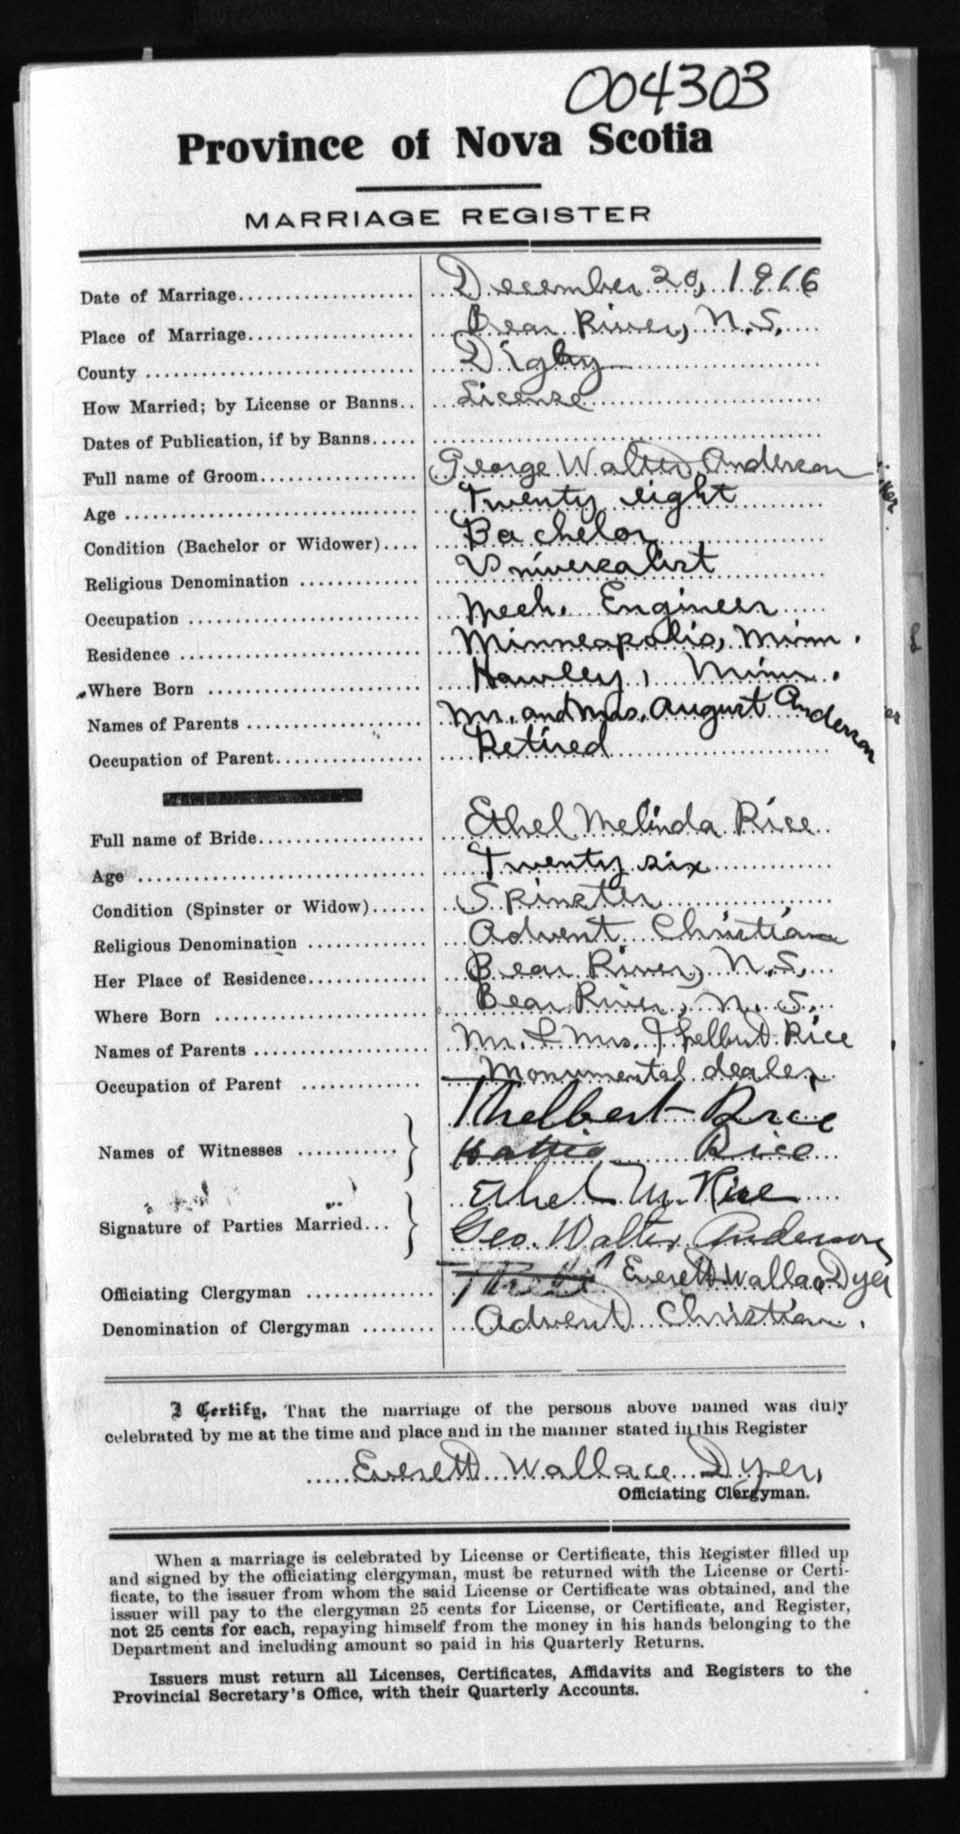 004303
Province of Nova Scotia
MARRIAGE REGISTER
Date of Marriage.................... December 20, 1916
Place of Marriage.................... Bear River, N.S.
County .................... Digby
How Married; by License or Banns.. License
Dates of Publication, if by Banns.....
Full name of Groom.................... George Walter Anderson
Age .................... Twenty eight
Condition (Bachelor or Widower).... Bachelor
Religious Denomination ............ Universalist
Occupation .................... Mech. Engineer
Residence .................... Minneapolis, Minn.
Where Born .................... Hawley, Minn.
Names of Parents .................... Mr. and Mrs. August Anderson
Occupation of Parent.................... Retired
Full name of Bride.................... Ethel Melinda Rice
Age .................... Twenty six
Condition (Spinster or Widow)...... Spinster
Religious Denomination ............ Advent Christian
Her Place of Residence............ Bear River, N.S.
Where Born .................... Bear River, N.S.
Names of Parents .................... Mr. & Mrs. Thelbert Rice
Occupation of Parent ............ Monumental dealer
Thelbert Rice
Names of Witnesses ........... } Hattie Rice
Ethel M. Rice
Signature of Parties Married... } Geo. Walter Anderson
Officiating Clergyman ............ Everett Wallace Dyer
Denomination of Clergyman ........ Advent Christian.
I Certify, That the marriage of the persons above named was duly
celebrated by me at the time and place and in the manner stated in this Register
..... Everett Wallace Dyer,
Officiating Clergyman.
When a marriage is celebrated by License or Certificate, this Register filled up
and signed by the officiating clergyman, must be returned with the License or Certi-
ficate, to the issuer from whom the said License or Certificate was obtained, and the
issuer will pay to the clergyman 25 cents for License, or Certificate, and Register,
not 25 cents for each, repaying himself from the money in his hands belonging to the
Department and including amount so paid in his Quarterly Returns.
Issuers must return all Licenses, Certificates, Affidavits and Registers to the
Provincial Secretary's Office, with their Quarterly Accounts.